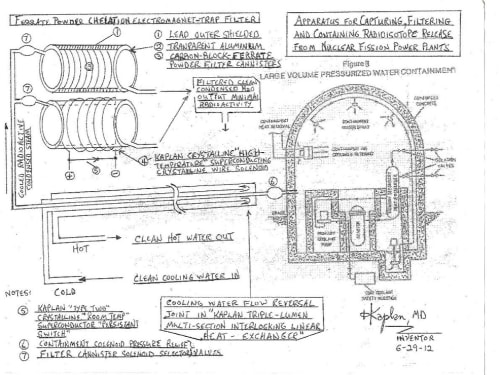 FERRATE POWDER CHELATION ELECTROMAGNET-TRAP FILTER
① LEAD OUTER SHIELDED
② TRANPARENT ALUMINIUM
③ CARBON-BLOCK-FERRATE
POWDER FILTER CANNISTERS
APPARATUS FOR CAPTURING, FILTERING
AND CONTAINING RADIOISOTOPE RELEASE
FROM NUCLEAR FISSION POWER PLANTS
Figure 3
LARGE VOLUME PRESSURIZED WATER CONTAINMENT
FILTERED CLEAN
CONDENSED H2O
OUTPUT MINIMAL
RADIOACTIVITY
COOLED RADIOACTIVE
CONDENSED STEAM
④ KAPLAN CRYSTALLINE "HIGH-
TEMPERATURE" SUPERCONDUCTING
CRYSTALLINE WIRE SOLENOID
+ ⑤ −
⑦
⑦
⑥
CONCRETE
CONTAINMENT
SOLENOID
VALVES
REACTOR
CLEAN HOT WATER OUT
HOT
CLEAN COOLING WATER IN
COLD
NOTES:
⑤ KAPLAN "TYPE TWO"
CRYSTALLINE "ROOM TEMP"
SUPERCONDUCTOR "PERSISTANT
SWITCH"
⑥ CONTAINMENT SOLENOID PRESSURE RELIEF
⑦ FILTER CANNISTER SOLENOID SELECTOR VALVES
COOLING WATER FLOW REVERSAL
JOINT IN "KAPLAN TRIPLE-LUMEN
MULTI-SECTION INTERLOCKING LINEAR
HEAT-EXCHANGER"
Kaplan MD
INVENTOR
6-29-12